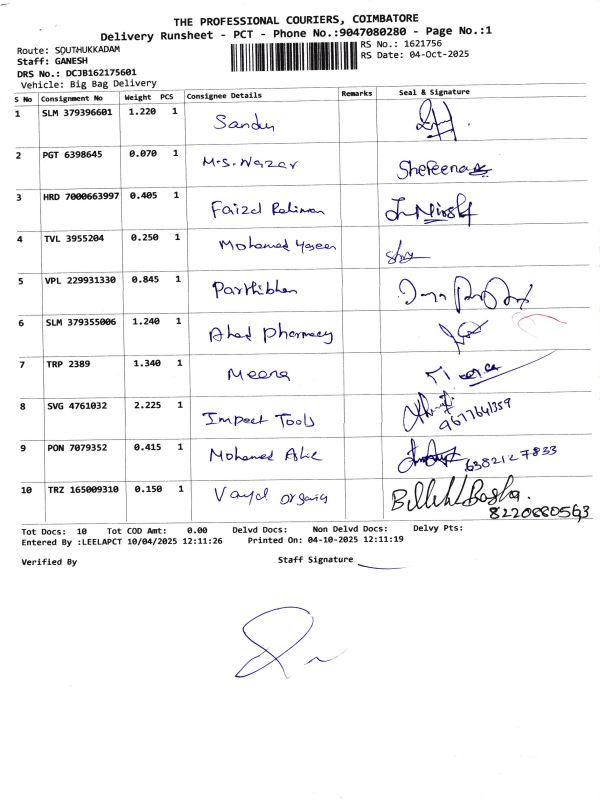 THE PROFESSIONAL COURIERS, COIMBATORE
Delivery Runsheet - PCT - Phone No.:9047080280 - Page No.:1
Route: SOUTHUKKADAM
RS No.: 1621756
Staff: GANESH
RS Date: 04-Oct-2025
DRS No.: DCJB162175601
Vehicle: Big Bag Delivery
S No Consignment No Weight PCS Consignee Details Remarks Seal & Signature
1 SLM 379396601 1.220 1
2 PGT 6398645 0.070 1 M.S. Nazar Shefeena
3 HRD 7000663997 0.405 1 Faizal Rahman
4 TVL 3955204 0.250 1 Mohamed Yaseen
5 VPL 229931330 0.845 1 Parthiban
6 SLM 379355006 1.240 1 Ahad Pharmacy
7 TRP 2389 1.340 1 Meera Meera
8 SVG 4761032 2.225 1 Impact Tools 9677641359
9 PON 7079352 0.415 1 Mohamed 6382127833
10 TRZ 165009310 0.150 1 organics
Tot Docs: 10 Tot COD Amt: 0.00 Delvd Docs: Non Delvd Docs: Delvy Pts:
Entered By :LEELAPCT 10/04/2025 12:11:26 Printed On: 04-10-2025 12:11:19
Verified By Staff Signature